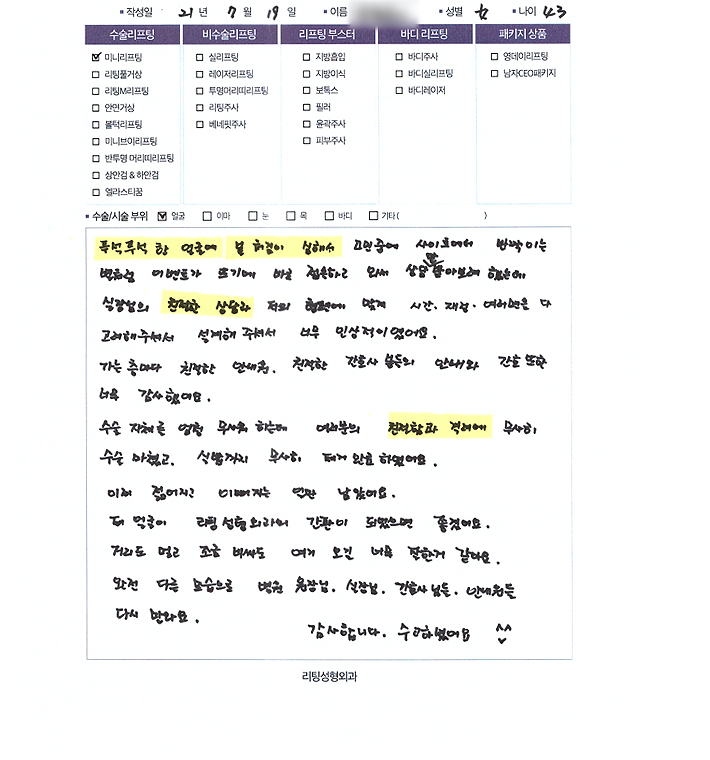 ▪ 작성일 21 년 7 월 19 일 ▪ 이름 ▪ 성별 女 ▪ 나이 43
수술리프팅 비수술리프팅 리프팅 부스터 바디 리프팅 패키지 상품
☑ 미니리프팅 □ 실리프팅 □ 지방흡입 □ 바디주사 □ 영데이리프팅
□ 리팅풀거상 □ 레이저리프팅 □ 지방이식 □ 바디실리프팅 □ 남자CEO패키지
□ 리팅M리프팅 □ 투명머리띠리프팅 □ 보톡스 □ 바디레이저
□ 안면거상 □ 리팅주사 □ 필러
□ 볼턱리프팅 □ 베네핏주사 □ 윤곽주사
□ 미니브이리프팅 □ 피부주사
□ 반투명 머리띠리프팅
□ 상안검 & 하안검
□ 엘라스티꿈
▪ 수술/시술 부위 ☑ 얼굴 □ 이마 □ 눈 □ 목 □ 바디 □ 기타( )
푹석푹석 한 얼굴에 볼 처짐이 심해서 고민중에 사이트에서 반짝이는
별처럼 이벤트가 뜨기에 바로 접운하고 와서 상담 받아보려 했는데
실장님의 친절한 상담과 저의 형편에 맞게 시간. 재정. 여러면을 다
고려해주셔서 설계해 주셔서 너무 인상적이었어요.
가는 층마다 친절한 안내원. 친절한 간호사 분들의 안내와 간호 또한
너무 감사했어요.
수술 자체를 엄청 무서워 하는데 여러분의 친절함과 격려에 무사히
수술 마쳤고. 실밥까지 무사히 제거 완료 하였어요.
이제 젊어지고 이뻐지는 일만 남았어요.
제 얼굴이 리팅성형외과의 간판이 되었으면 좋겠어요.
거리도 멀고 조금 비싸도 여기 오길 너무 잘한거 같아요.
완전 다른 모습으로 병원 원장님. 실장님. 간호사님들. 안내원들
다시 만나요.
감사합니다. 수고하셨어요 ^^
리팅성형외과